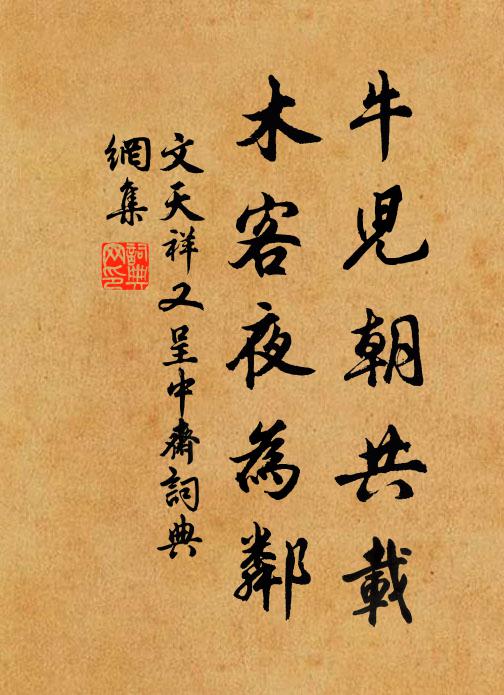 牛児朝共載
木客夜為鄰
文天祥又呈中齋詞典
網集
詞典網印